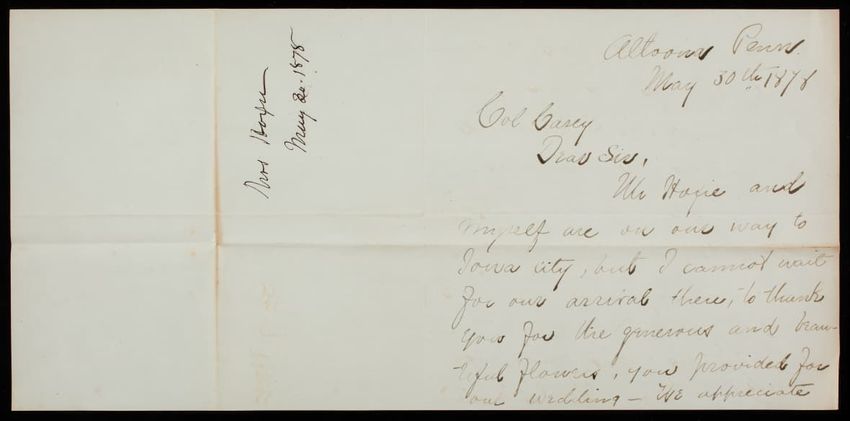 Mrs Hoxie
May 30. 1878
Altoona Penn.
May 30th 1878
Col Casey
Dear Sir,
Mr Hoxie and
myself are on our way to
Iowa city, but I cannot wait
for our arrival there, to thank
you for the generous and beau-
tiful flowers, you provided for
our wedding - We appreciate